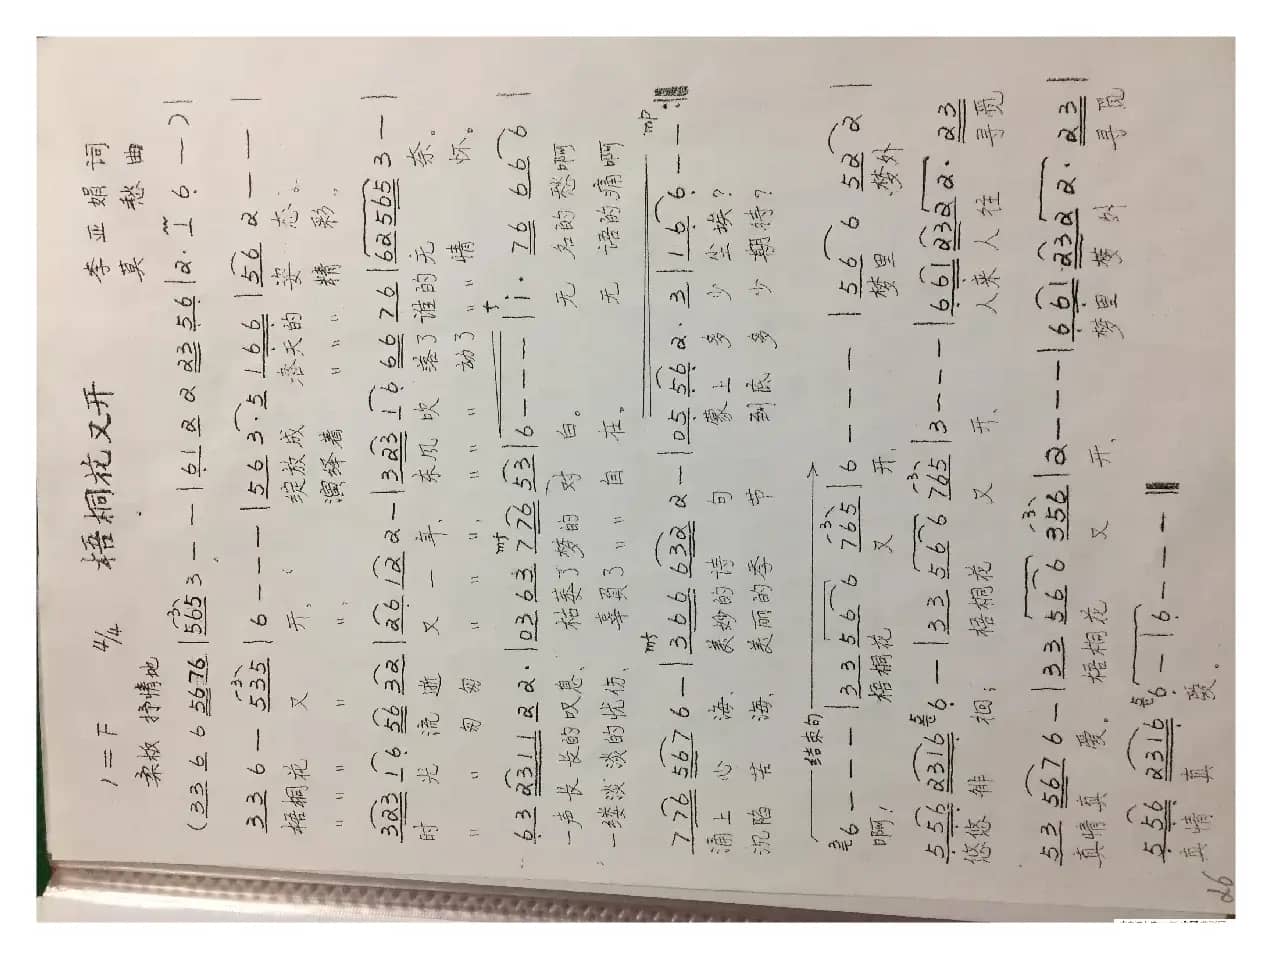 梧桐花又开
1=F 4/4 李亚娟 词
柔板 抒情地 莫愁 曲
(33 6 6 5676 | 565 3 - - | 61 2 2 23 56 | 2· 1 6 - ) |
33 6 - 535 | 6 - - - | 56 3·5 166 | 56 2 - - |
梧桐花 又 开, 绽放成 落天的 姿 态。
" " " " ", 演绎着 " " 精 彩,
323 16 56 32 | 26 12 2 - | 323 16 66 76 | 62565 3 - |
时 光 流 逝 又 一 年, 东风 吹 落了 谁的 无 奈。
" " 匆 匆 " " ", " " " 动了 " " 情 怀。
63 2311 2 2· | 03 63 776 53 | 6 - - - | i· 76 66 6 |
一声长长的叹息, 枯萎了梦的 对 白。 无 名的 愁啊
一缕淡淡的忧伤, 辜负了 " " 自 在。 无 语的 痛啊
776 567 6 - | 366 632 2 - | 05 56 2· 3 | 1 66 - - :|
涌上 心 海, 美妙的诗 句 蒙上 多 少 尘埃?
沉陷 苦 海, 美丽的季 节 到底 多 少 期待?
结束句
6 - - - | 33 566 765 | 6 - - - | 566 522 |
啊! 梧桐花 又 开, 梦里 梦外
556 2316 6 - | 33 566 765 | 3 - - - | 661 232 2· 23 |
悠悠 徘 徊; 梧桐花 又 开, 人来 人往 寻觅
53 567 6 - | 33 566 356 | 2 - - - | 661 232 2· 23 |
真情真 爱。 梧桐花 又 开, 梦里 梦外 寻觅
556 2316 6 - | 6 - - - ||
真情 真 爱。
26